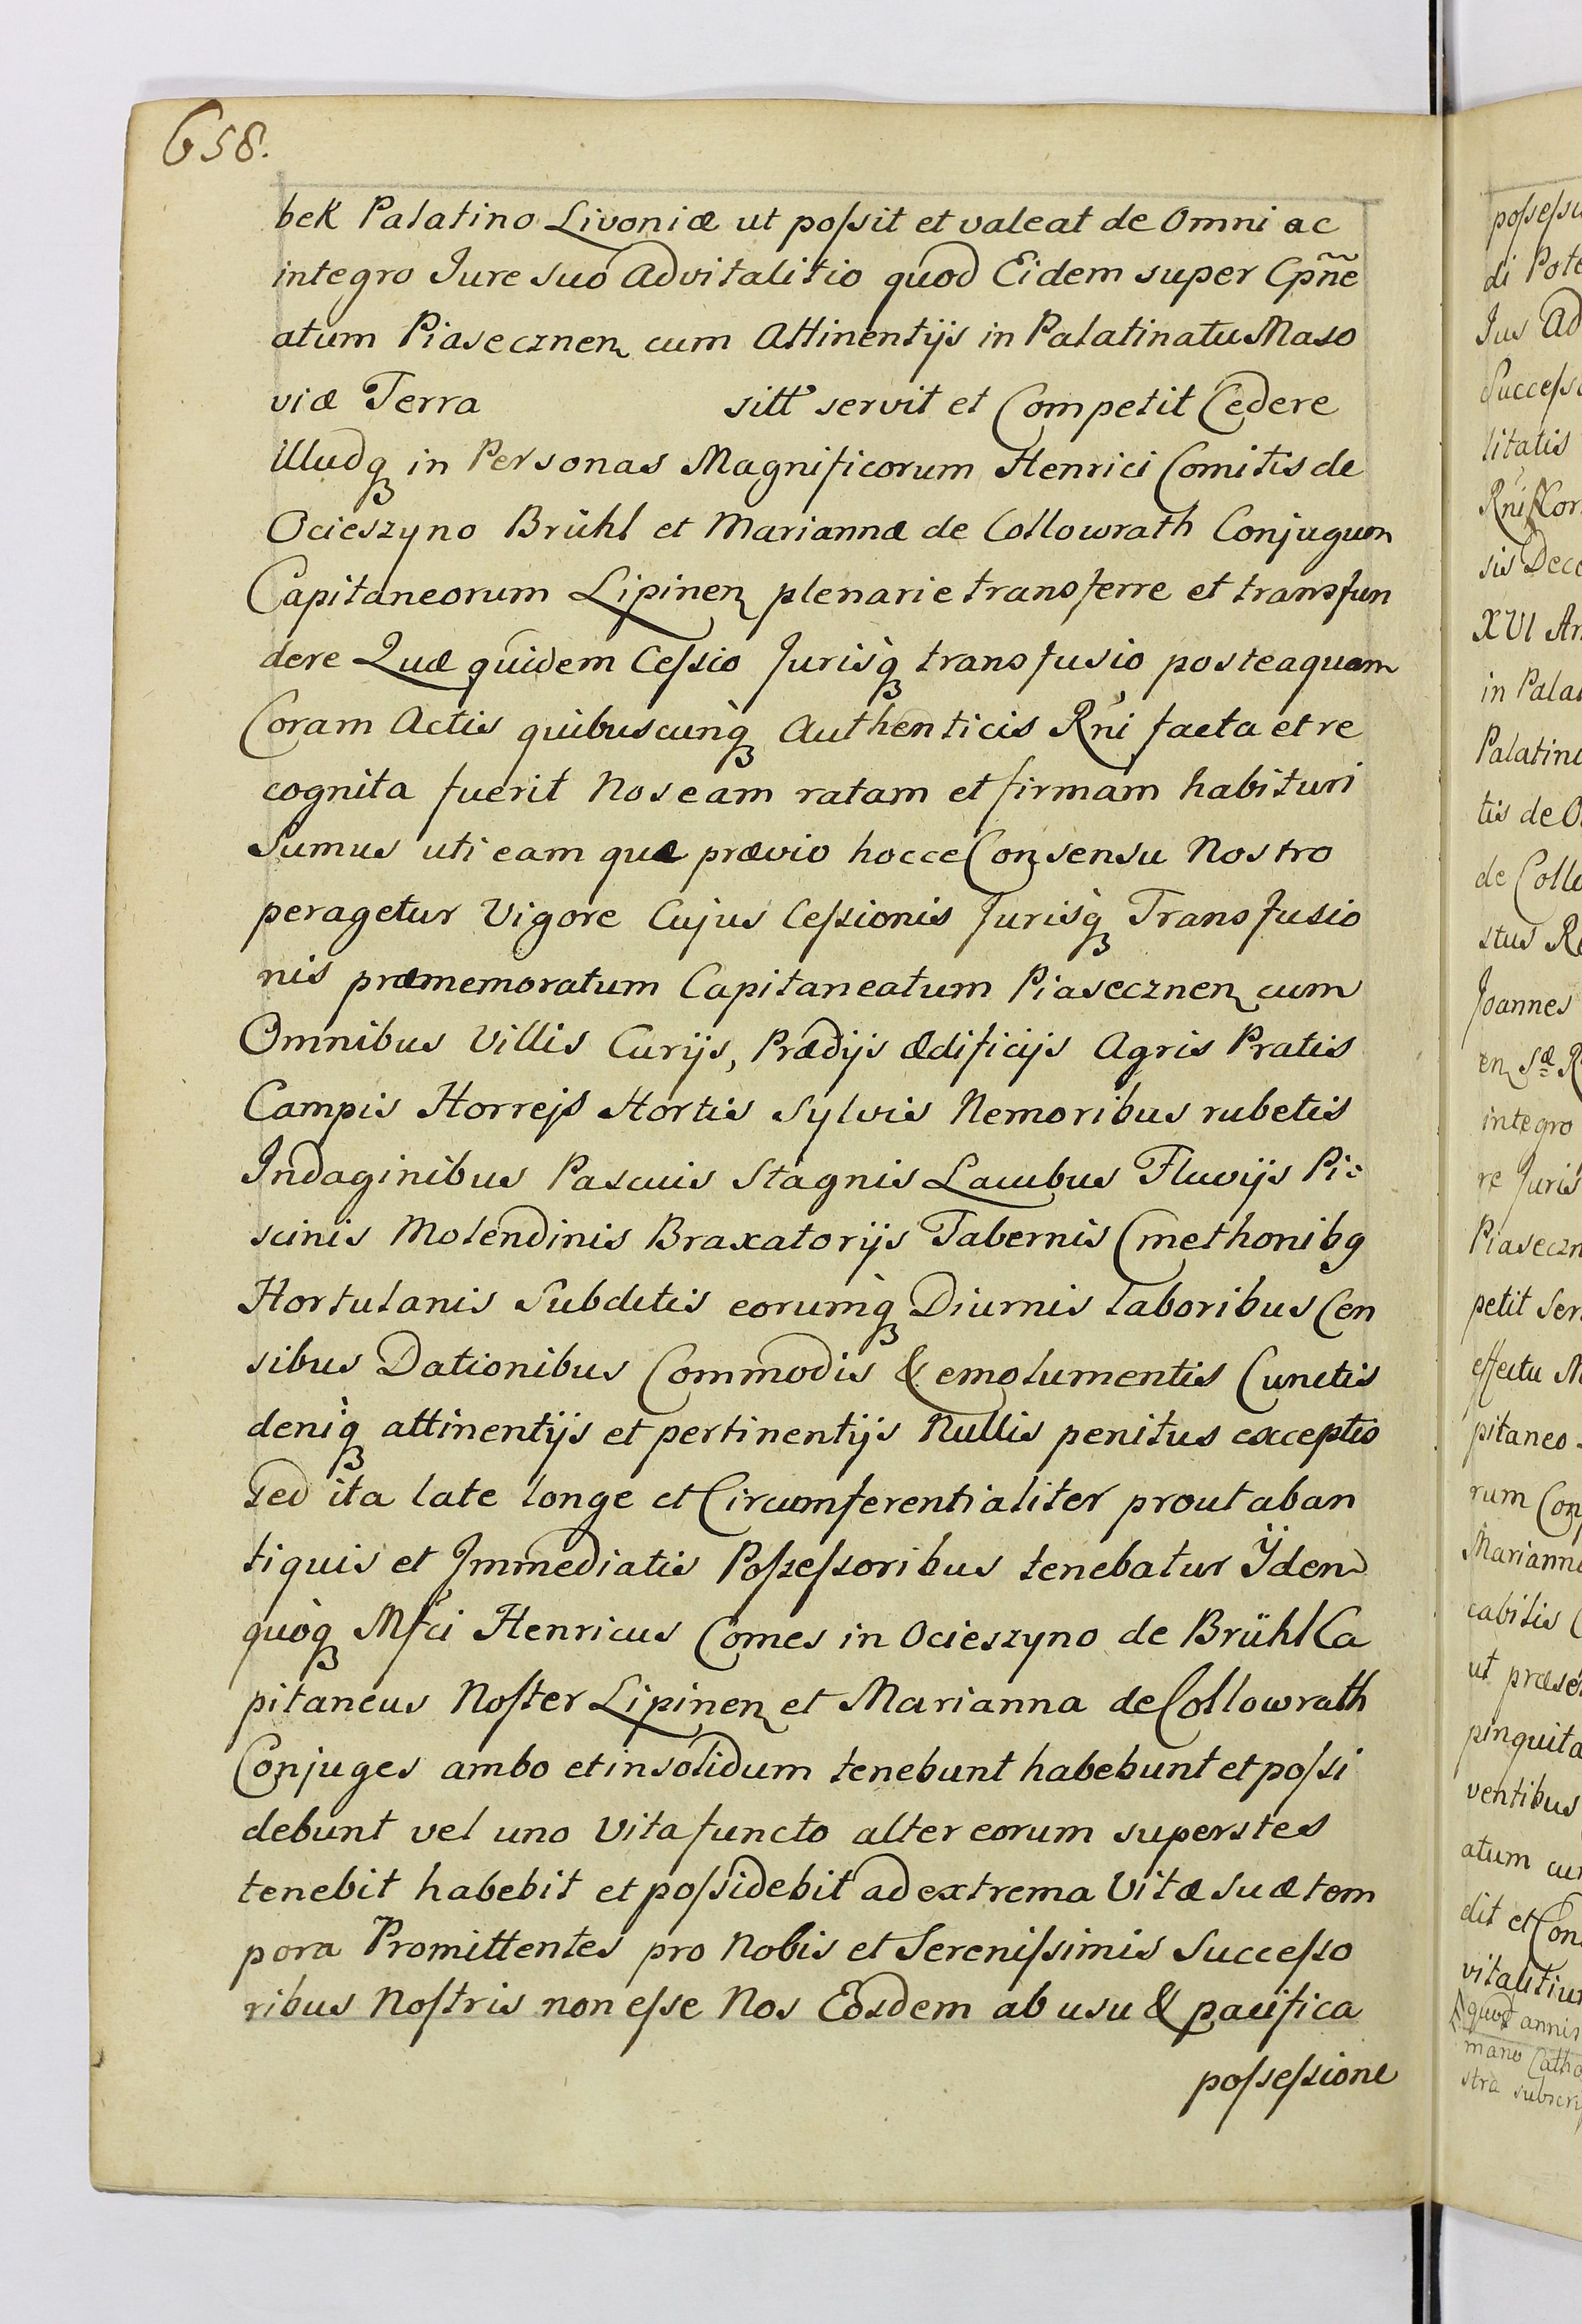 658.
bek Palatino Livoniæ ut poſsit et valeat de Omni ac
integro Jure suo Advitalitio quod Eidem super Cpñe
atum Piasecznen cum Attinentijs in Palatinatu Maso
viæ Terra sitt servit et Competit Cedere
Illudq in Personas Magnificorum Henrici Comitis de
Ocieszyno Brühl et Mariannæ de Collowrath Conjugum
Capitaneorum Lipinen plenarie transferre et transfun
dere Quæ quidem Ceſsio Jurisq transfusio posteaquam
Coram Actis quibuscunq Authenticis Rni facta et re
cognita fuerit Nos eam ratam et firmam habituri
Sumus uti eam quæ prævio hocce Consensu Nostro
peragetur Vigore Cujus Ceſsionis Jurisq Transfusio
nis præmemoratum Capitaneatum Piasecznen cum
Omnibus Villis Curijs, Prædijs ædificijs Agris Pratis
Campis Horrejs Hortis Sylvis Nemoribus rubetis
Indaginibus Pascuis Stagnis Lacubus Fluvijs Pi:
scinis Molendinis Braxatorijs Tabernis Cmethonibg
Hortulanis Subditis eorumq Diurnis laboribus Cen
sibus Dationibus Commodis & emolumentis Cunctis
deniq attinentijs et pertinentijs Nullis penitus exceptis
sed ita late longe et Circumferentialiter prout ab an
tiquis et Immediatis Poſseſsoribus tenebatur Ÿdem
quoq Mfci Henricus Comes in Ocieszyno de Brühl Ca
pitaneus Noſter Lipinen et Marianna de Collowrath
Conjuges ambo et in solidum tenebunt habebunt et poſsi
debunt vel uno Vita functo alter eorum superstes
tenebit habebit et poſsidebit ad extrema Vitæ Suæ tem
pora Promittentes pro Nobis et Sereniſsimis Succeſso
ribus Noſtris non eſse Nos Eosdem ab usu & pacifica
poſseſsione
poſseſsi
di Pote
Jus Ad
Succeſs
litatis
Rni Cor
sis Dece
XVI An
in Pala
Palatin
tis de O
de Coll
stus Re
Joannes
en Sæ R
integro
re Juris
Piaseczn
petit Ser
effectu M
pitaneo
rum Con
Mariann
cabilis C
ut præse
pinguita
ventibus
atum cu
dit et Con
vitalitiu
quod annis
mano Catho
stra subscri